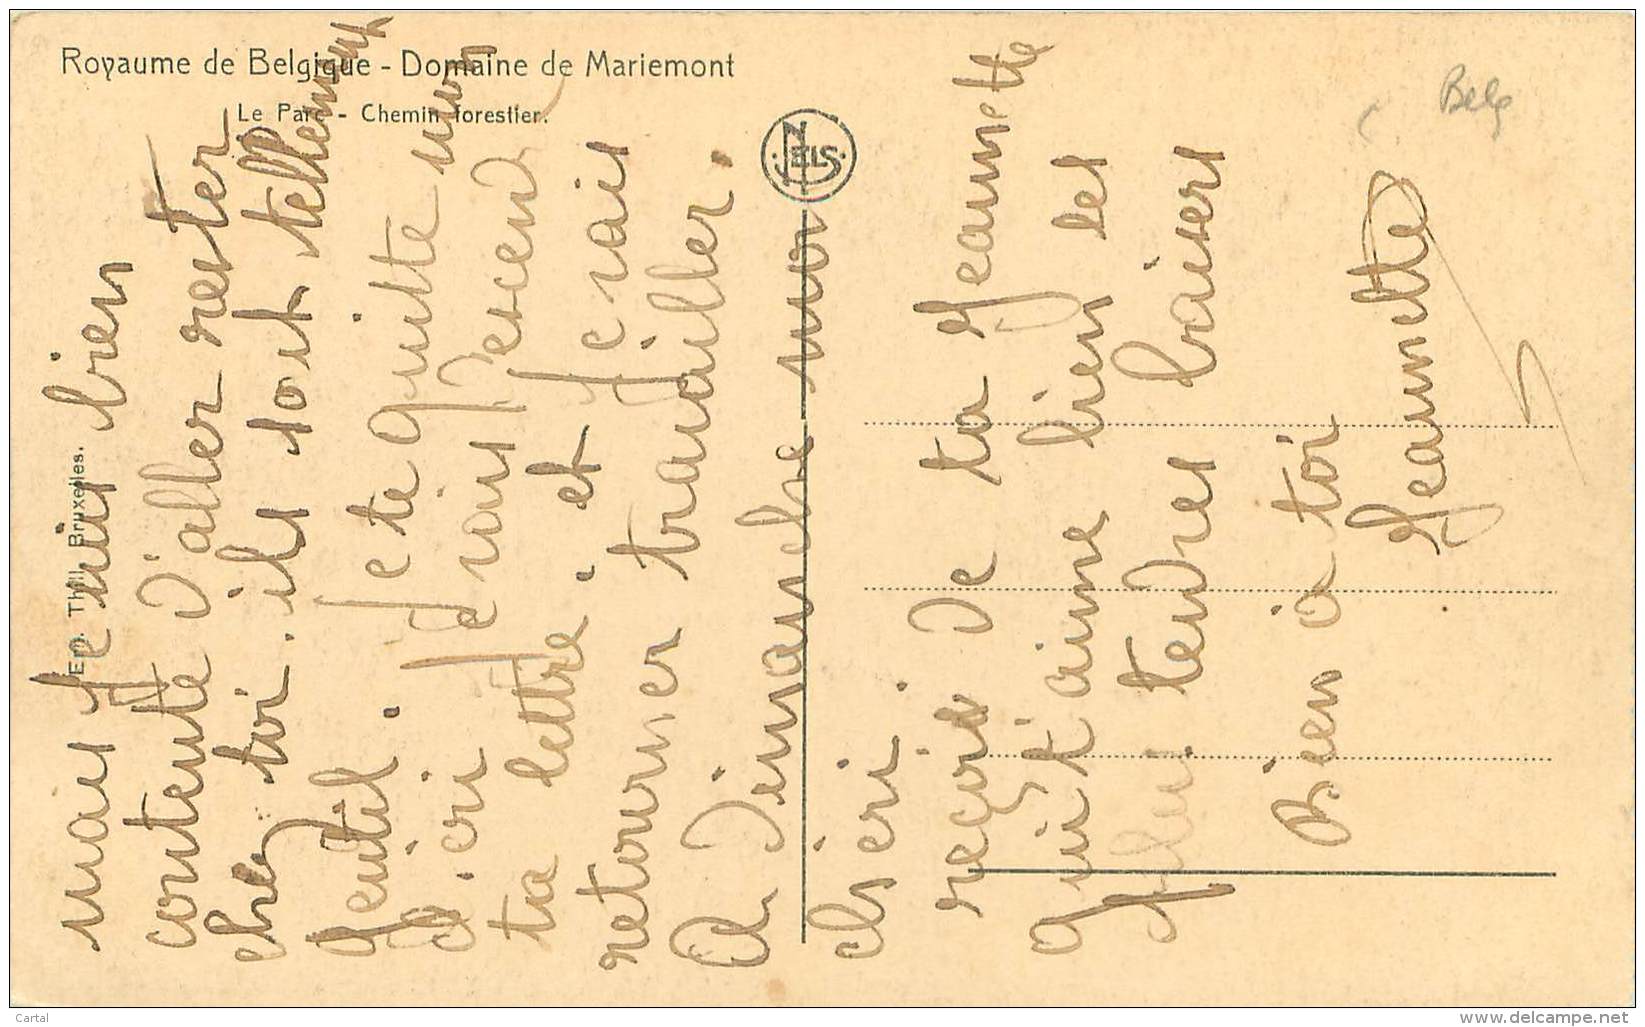 Royaume de Belgique - Domaine de Mariemont
Le Parc - Chemin forestier.
NELS
Ern. Thill Bruxelles.
Belg
mais Je suis bien
contente d'aller rester
chez toi. ils sont tellement
gentil. Je te quitte mon
cheri Je vais Descend
ta lettre. et Je vais
retourner travailler.
A Dimanche mon
chéri.
reçois De ta Jeannette
qui t'aime bien ses
plus tendres baisers
Bien à toi
Jeannette
Cartal
www.delcampe.net